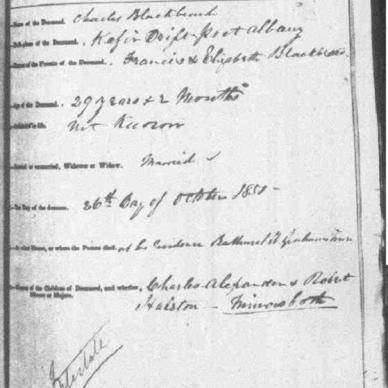 Name of the Deceased, Charles Blackbeard
Birthplace of the Deceased, Kafir Drift - Post Albany
Names of the Parents of the Deceased, Francis & Elizabeth Blackbeard
Age of the Deceased, 29 years & 2 Months
not Known
Married or unmarried, Widower or Widow, Married
The Day of the decease, 26th Day of October 1851 -
In what House, or where the Person died, at his residence Bathurst St Grahamstown
Names of the Children of Deceased, and whether Charles Alexander & Robert
Minors or Majors, Halston - Minors both
Intestate